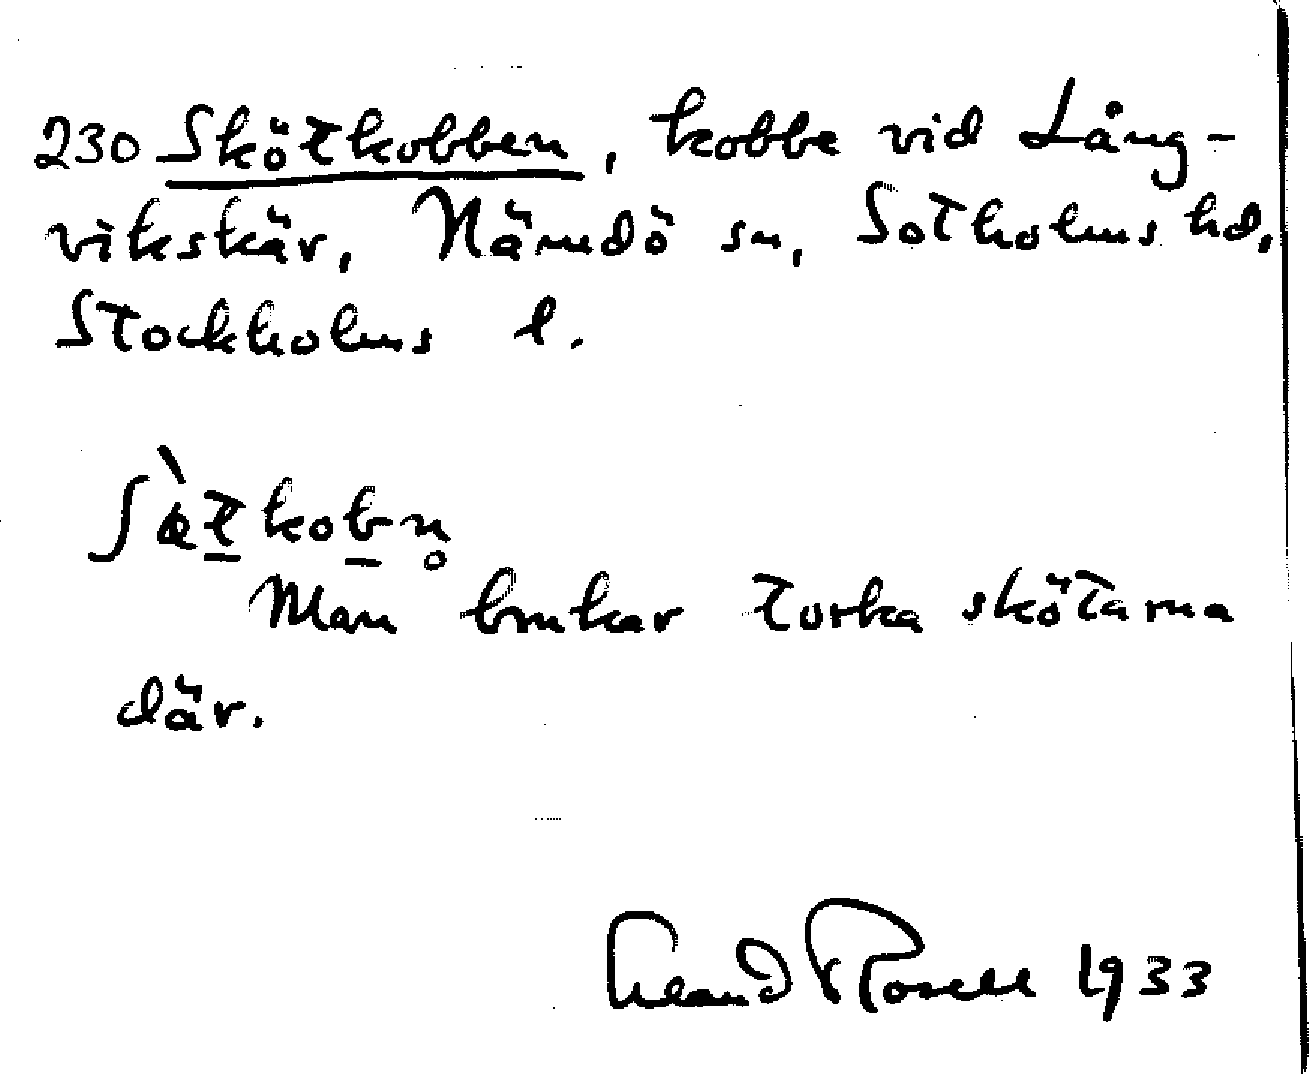 230 Skötkobben, kobbe vid Lång-
vikskär, Nämdö sn, Sotholms hd,
Stockholms l.
ʃœ̀t̲kob̲n̥
Man brukar torka skötarna
där.
Rosell 1933